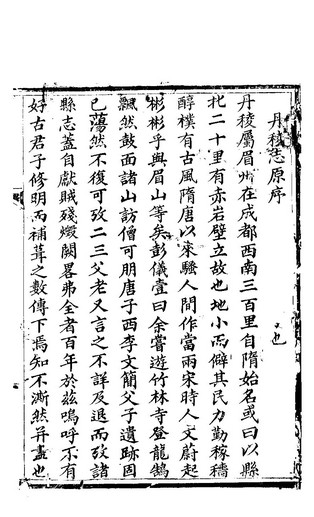 丹稜志原序
丹稜屬眉州在成都西南三百里自隋始名或曰以縣
北二十里有赤岩壁立故也地小而僻其民力勤稼穡
醇樸有古風隋唐以來騷人間作當兩宋時人文蔚起
彬彬乎與眉山等矣彭儀壹曰余嘗遊竹林寺登龍鵠
飄然鼓面諸山訪僧可朋唐子西李文簡父子遺跡固
已蕩然不復可攷二三父老又言之不詳及退而攷諸
縣志蓋自獻賊殘燬闕畧弗全者百年於茲嗚呼不有
好古君子修明而補葺之數傳下焉知不澌然并盡也